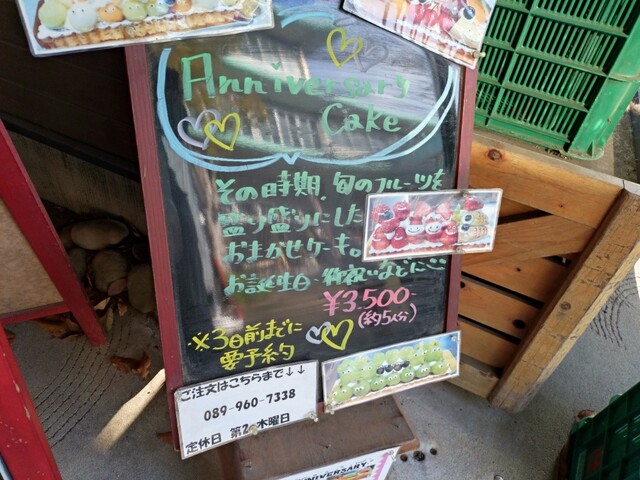 Anniversary
Cake
その時期、旬のフルーツを
盛り盛りにした
おまかせケーキ。
お誕生日・御祝いなどに
¥3,500
(約5人分)
※3日前までに
要予約
ご注文はこちらまで↓↓
089-960-7338
定休日 第2 木曜日
ANNIVERSARY